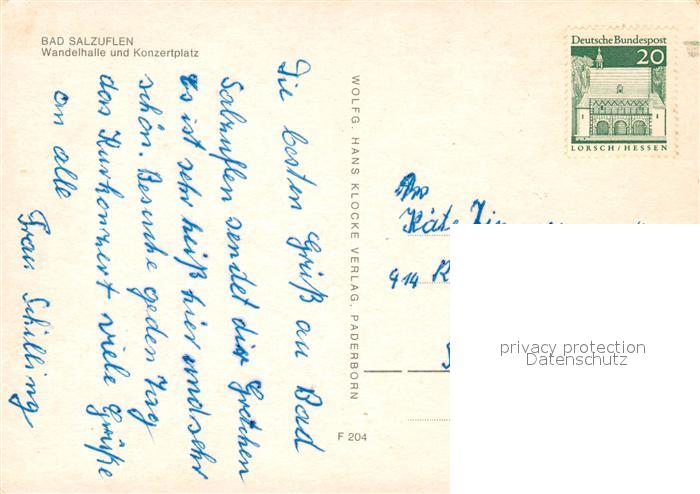 BAD SALZUFLEN
Wandelhalle und Konzertplatz
die besten Grüß au Bad
Salzuflen sendet dir Gretchen
es ist sehr heiß hier und sehr
schön. Besuche geden Tag
das Kurkonzert viele Grüße
an alle
Frau Schilling
WOLFG. HANS KLOCKE VERLAG, PADERBORN
F 204
Deutsche Bundespost
20
LORSCH/HESSEN
An
Käte
privacy protection
Datenschutz